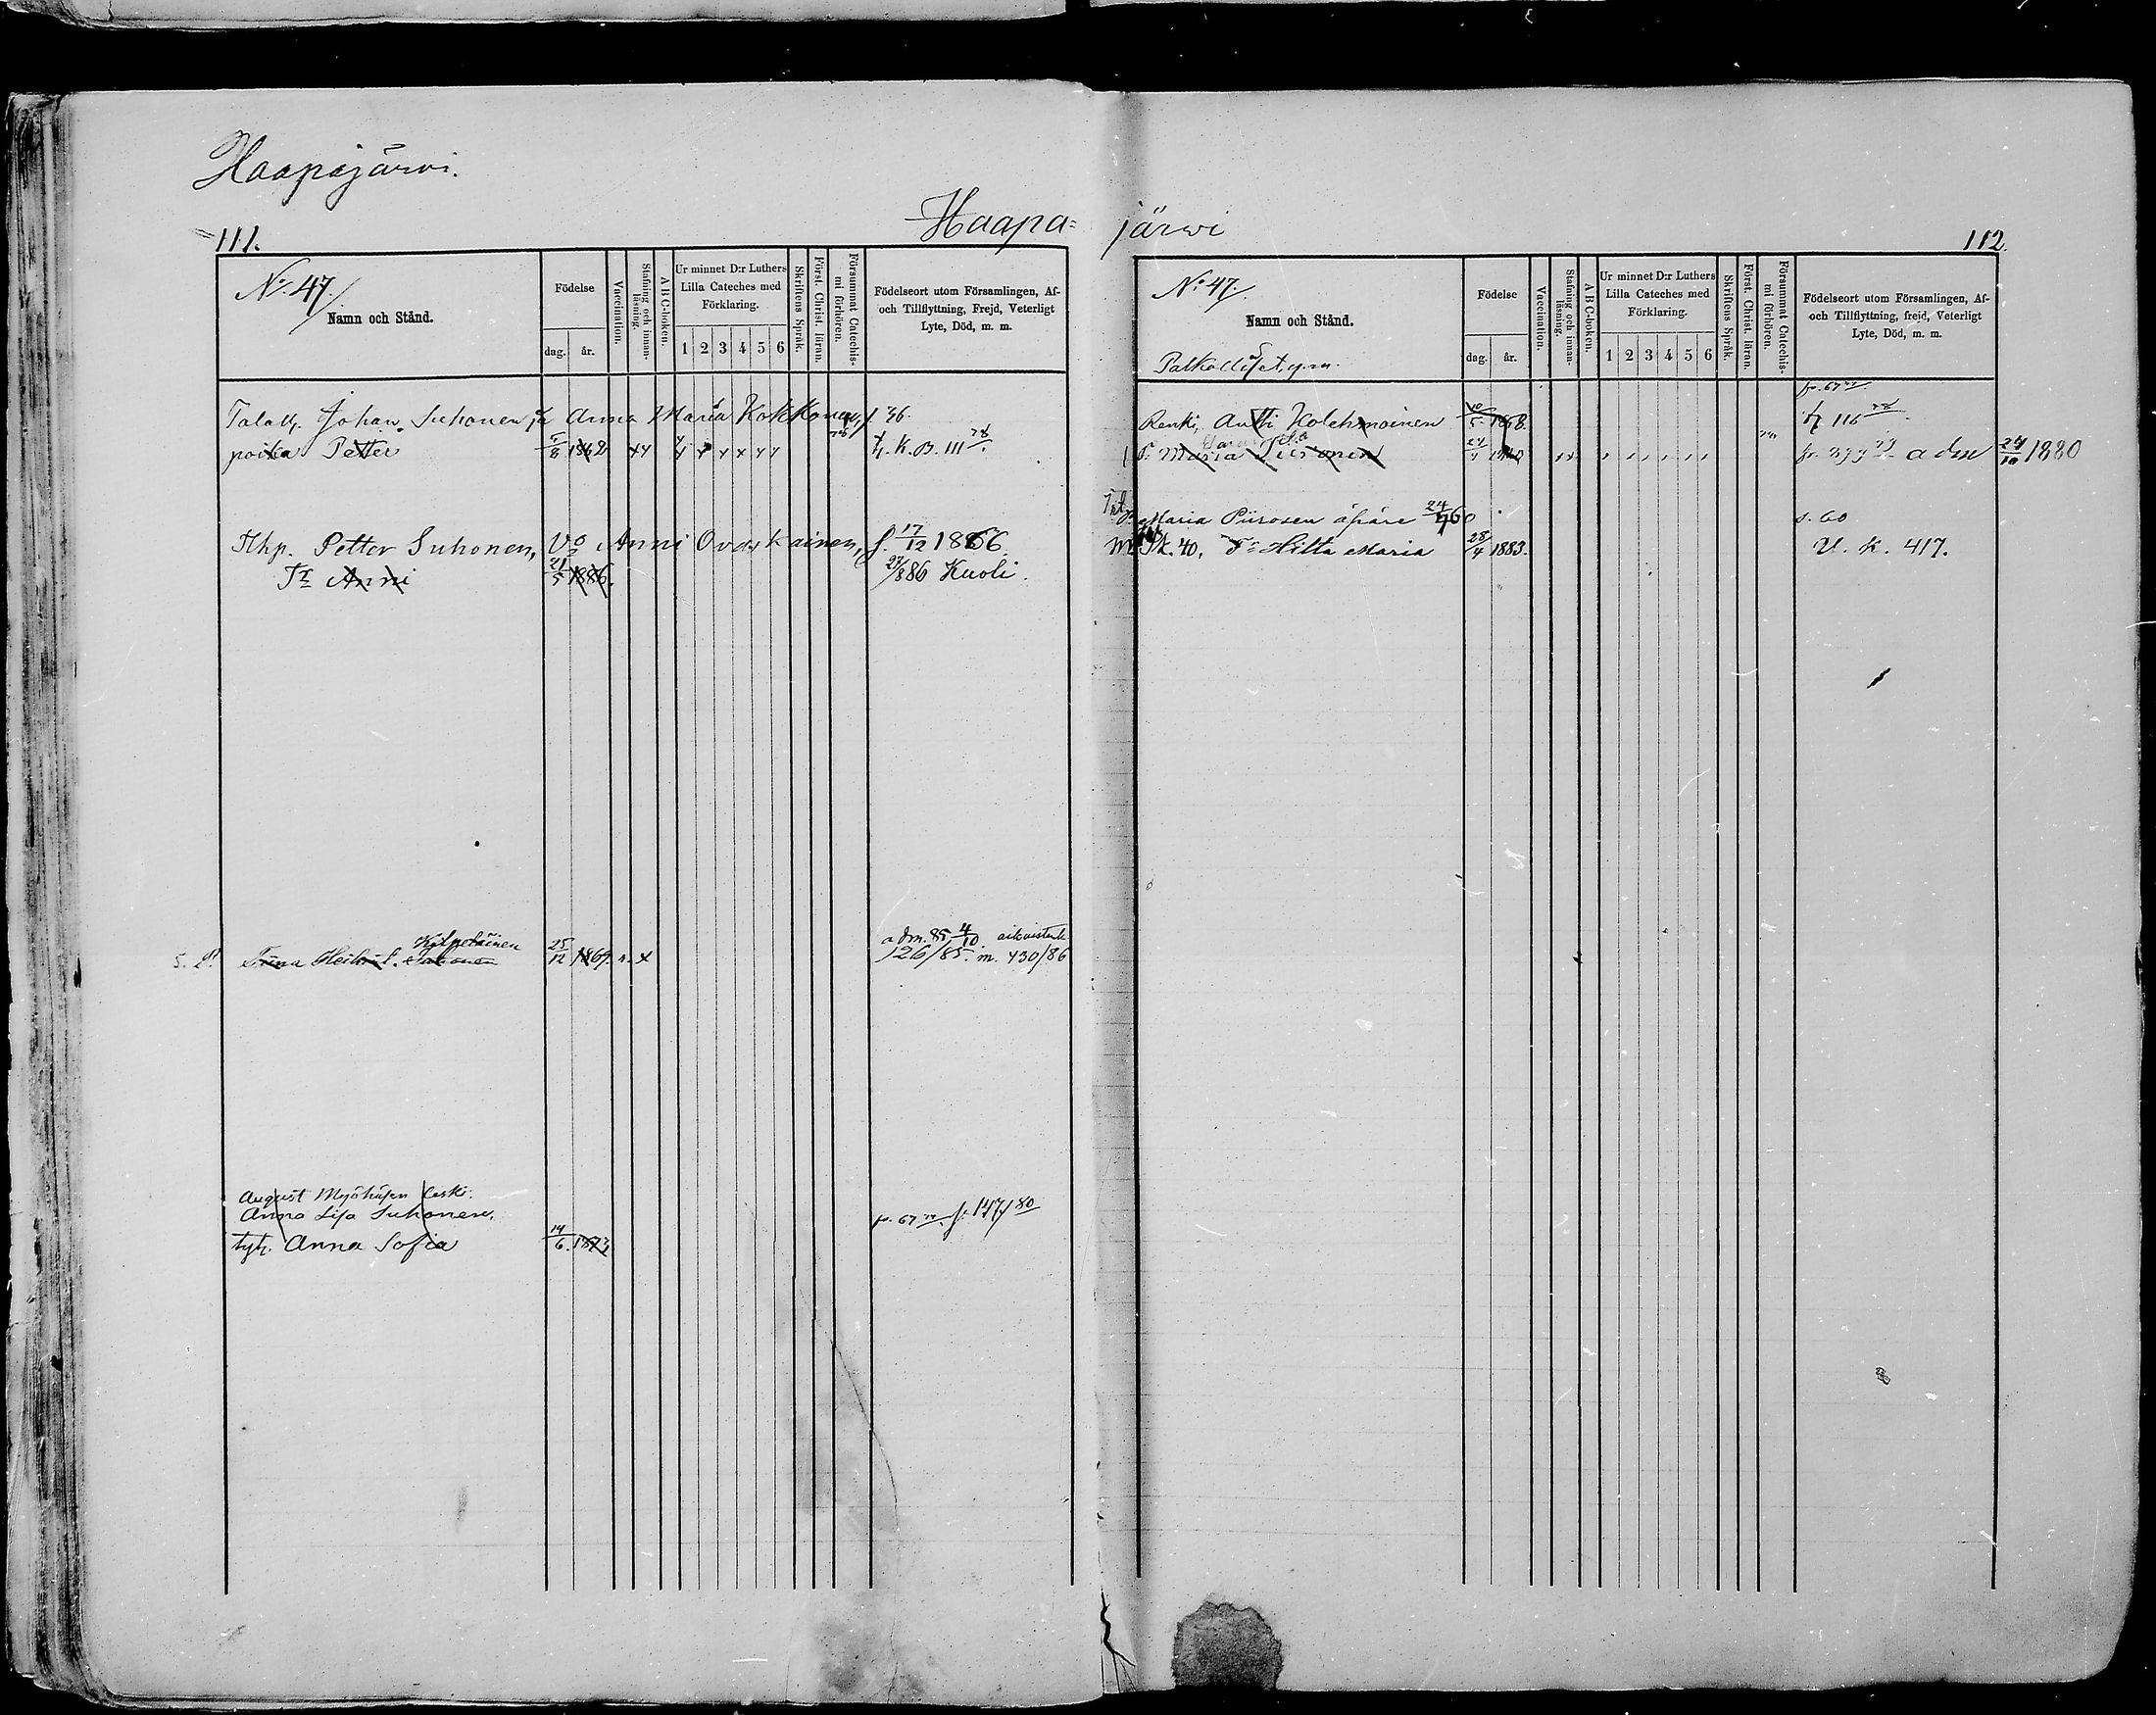 Haapajärvi.
Haapa=
111.
No. 47.
Namn och Stånd.
Födelse
dag. år.
Vaccination.
Stafning och innan-läsning.
A B C-boken.
Ur minnet D:r Luthers Lilla Cateches med Förklaring.
1 2 3 4 5 6
Skriftens Språk.
Först. Christ. läran.
Försummat Catechis-mi förhören.
Födelseort utom Församlingen, Af- och Tillflyttning, Frejd, Veterligt Lyte, Död, m. m.
Johan Suhonen ja Anna Maria Kokkonen,
poika Petter 5/8 1862 t. K. B. 111 78.
Petter Suhonen, Vo Anni f. 17/12 1866.
Tr Anni 21/5 1886. 27/8 86 Kuoli.
Kilpeläinen adm. 85 4/10.
S. P. 25/12 1869. 126/85. m. 430/86
August leski.
Anna Lisa Suhonen, fr. 67 f. 147/80
tyt. Anna Sofia 14/6.
järwi
112.
No. 47.
Namn och Stånd.
Födelse
dag. år.
Vaccination.
Stafning och innan-läsning.
A B C-boken.
Ur minnet D:r Luthers Lilla Cateches med Förklaring.
1 2 3 4 5 6
Skriftens Språk.
Först. Christ. läran.
Försummat Catechis-mi förhören.
Födelseort utom Församlingen, Af- och Tillflyttning, frejd, Veterligt Lyte, Död, m. m.
Renki, Antti Kolehmainen 10/5 1868. 116 78.
P. Maria adm 24/10 1880
Maria Piirosen äpäre 24/7 60 s. 60
40, Tr Hilta Maria 28/4 1883. U. K. 417.